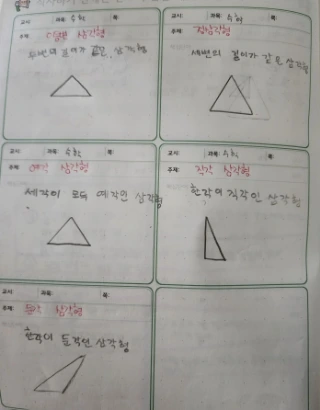 교시: 과목: 수학 쪽:
주제: 이등변 삼각형
두변의 길이가 같은 삼각형
교시: 과목: 수학 쪽:
주제: 정삼각형
세변의 길이가 같은 삼각형
교시: 과목: 수학 쪽:
주제: 예각 삼각형
세각이 모두 예각인 삼각형
교시: 과목: 수학 쪽:
주제: 직각 삼각형
한각이 직각인 삼각형
교시: 과목: 쪽:
주제: 둔각 삼각형
한각이 둔각인 삼각형